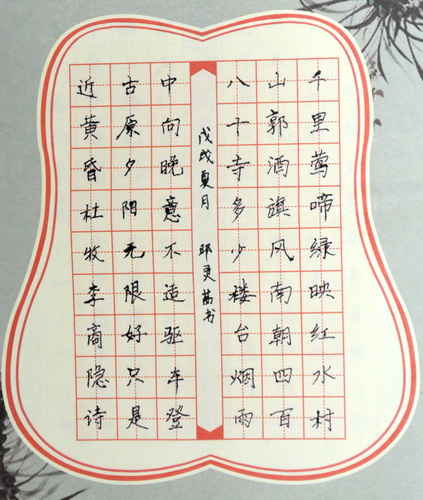 千里莺啼绿映红水村
山郭酒旗风南朝四百
八十寺多少楼台烟雨
戊戌夏月 灵书
中向晚意不适驱车登
古原夕阳无限好只是
近黄昏杜牧李商隐诗